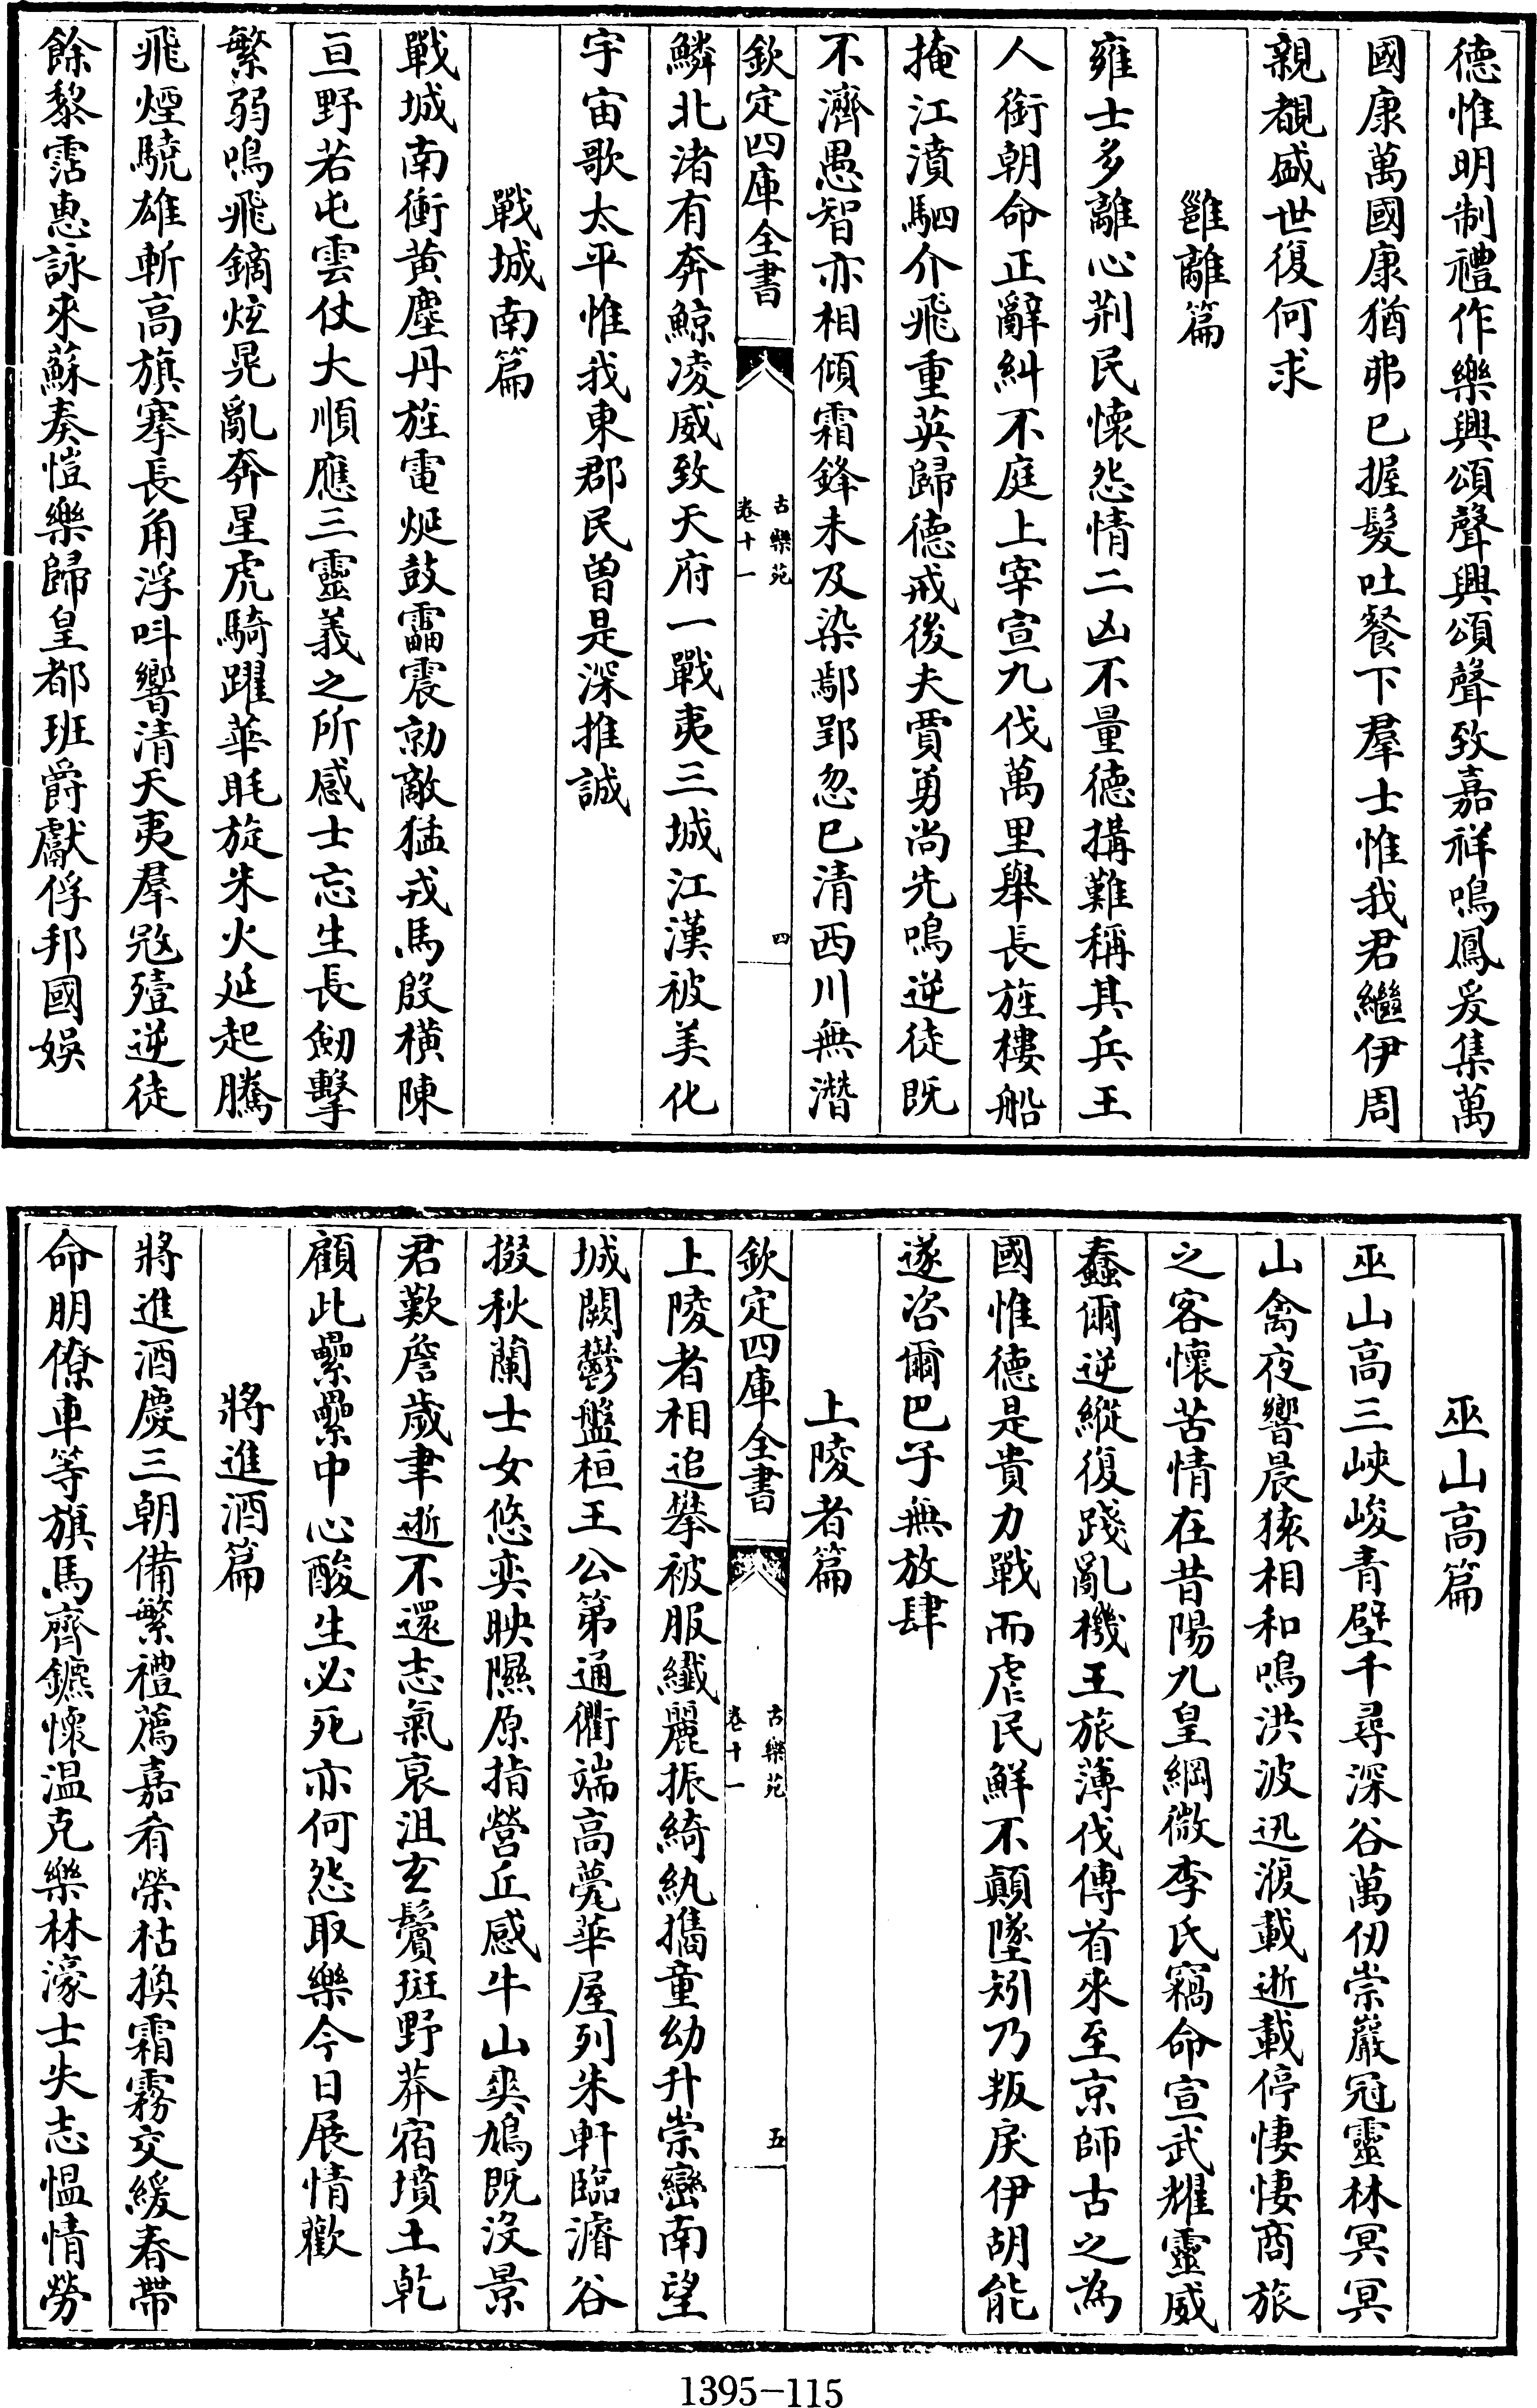 德惟明制禮作樂興頌聲興頌聲致嘉祥鳴鳳爰集萬
國康萬國康猶弗已握髮吐餐下羣士惟我君繼伊周
親覩盛世復何求
雝離篇
雍士多離心荆民懷怨情二凶不量德搆難稱其兵王
人銜朝命正辭糾不庭上宰宣九伐萬里舉長旌樓船
掩江濆駟介飛重英歸德戒後夫賈勇尚先鳴逆徒既
不濟愚智亦相傾霜鋒未及染鄢郢忽已清西川無潛
欽定四庫全書
古樂苑
卷十一
四
鱗北渚有奔鯨凌威致天府一戰夷三城江漢被美化
宇宙歌太平惟我東郡民曾是深推誠
戰城南篇
戰城南衝黄塵丹旌電烻鼓雷震勍敵猛戎馬殷横陳
亘野若屯雲仗大順應三靈義之所感士忘生長劒擊
繁弱鳴飛鏑炫晃亂奔星虎騎躍華毦旋朱火延起騰
飛煙驍雄斬高旗搴長角浮呌響清天夷羣冦殪逆徒
餘黎霑惠詠來蘇奏愷樂歸皇都班爵獻俘邦國娱
巫山高篇
巫山高三峽峻青壁千尋深谷萬仞崇巖冠靈林冥冥
山禽夜響晨猿相和鳴洪波迅澓載逝載停悽悽商旅
之客懷苦情在昔陽九皇綱微李氏竊命宣武耀靈威
蠢爾逆縱復踐亂機王旅薄伐傳首來至京師古之為
國惟德是貴力戰而虐民鮮不顛墜矧乃叛戾伊胡能
遂咨爾巴子無放肆
上陵者篇
欽定四庫全書
古樂苑
卷十一
五
上陵者相追攀被服纖麗振綺紈攜童幼升崇巒南望
城闕鬱盤桓王公第通衢端高甍華屋列朱軒臨濬谷
掇秋蘭士女悠奕映隰原指營丘感牛山爽鳩既沒景
君歎詹歲聿逝不還志氣衰沮玄鬢斑野莽宿墳土乾
顧此纍纍中心酸生必死亦何怨取樂今日展情歡
將進酒篇
將進酒慶三朝備繁禮薦嘉肴榮枯换霜霧交緩春帶
命朋僚車等旗馬齊鑣懷温克樂林濠士失志愠情勞
1395-115